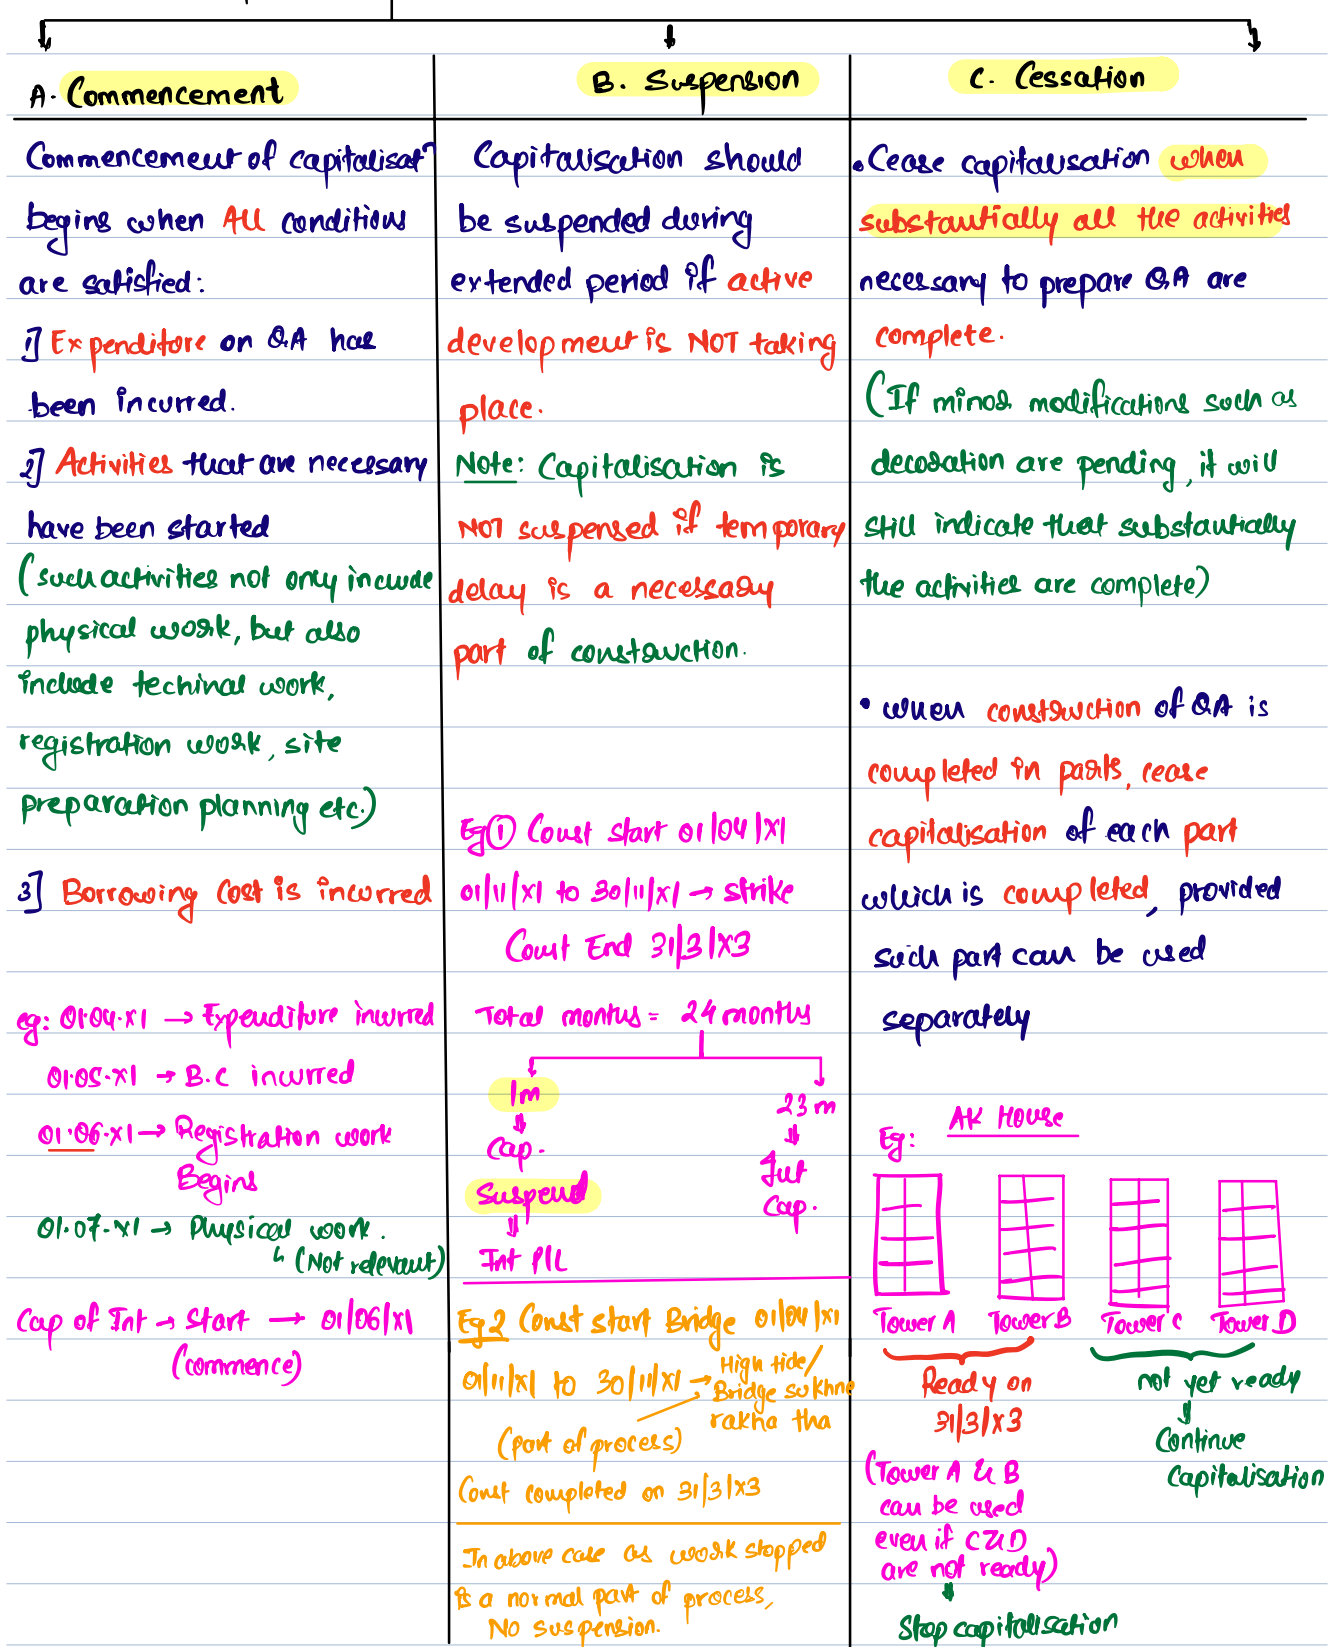 A. Commencement
Commencement of capitalisatn
begins when All conditions
are satisfied:
1] Expenditure on QA has
been incurred.
2] Activities that are necessary
have been started
(such activities not only include
physical work, but also
include techinal work,
registration work, site
preparation planning etc.)
3] Borrowing Cost is incurred
eg: 01.04.x1 → Expenditure incurred
01.05.x1 → B.C incurred
01.06.x1 → Registration work
Begins
01.07.x1 → Physical work.
↳ (Not relevant)
Cap of Int → Start → 01/06/x1
(commence)
B. Suspension
Capitalisation should
be suspended during
extended period if active
development is NOT taking
place.
Note: Capitalisation is
NOT suspensed if temporary
delay is a necessary
part of construction.
Eg ① Const start 01/04/x1
01/11/x1 to 30/11/x1 → strike
Const End 31/3/x3
Total months = 24 months
1m
Cap.
Suspend
Int P/L
23 m
Int
Cap.
Eg 2 Const start Bridge 01/04/x1
01/11/x1 to 30/11/x1 → High tide/
Bridge sukhne
rakha tha
(part of process)
Const completed on 31/3/x3
In above case as work stopped
is a normal part of process,
No suspension.
C. Cessation
• Cease capitalisation when
substantially all the activities
necessary to prepare QA are
complete.
(If minor modifications such as
decoration are pending, it will
still indicate that substantially
the activities are complete)
• when construction of QA is
completed in parts, cease
capitalisation of each part
which is completed, provided
such part can be used
separately
Eg: AK House
Tower A Tower B Tower C Tower D
Ready on
31/3/x3
(Tower A & B
can be used
even if C & D
are not ready)
Stop capitalisation
not yet ready
Continue
Capitalisation